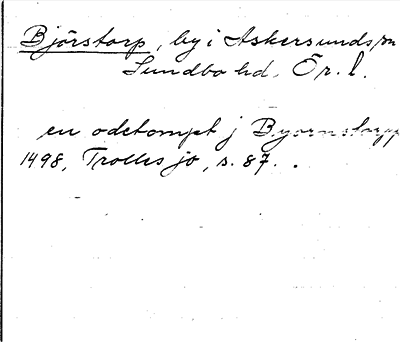 Björstorp, by i Askersunds sn
Sundbo hd. Ör. l.
en ödetompt j Byornstorpp
1498, Trolles jb, s. 87.